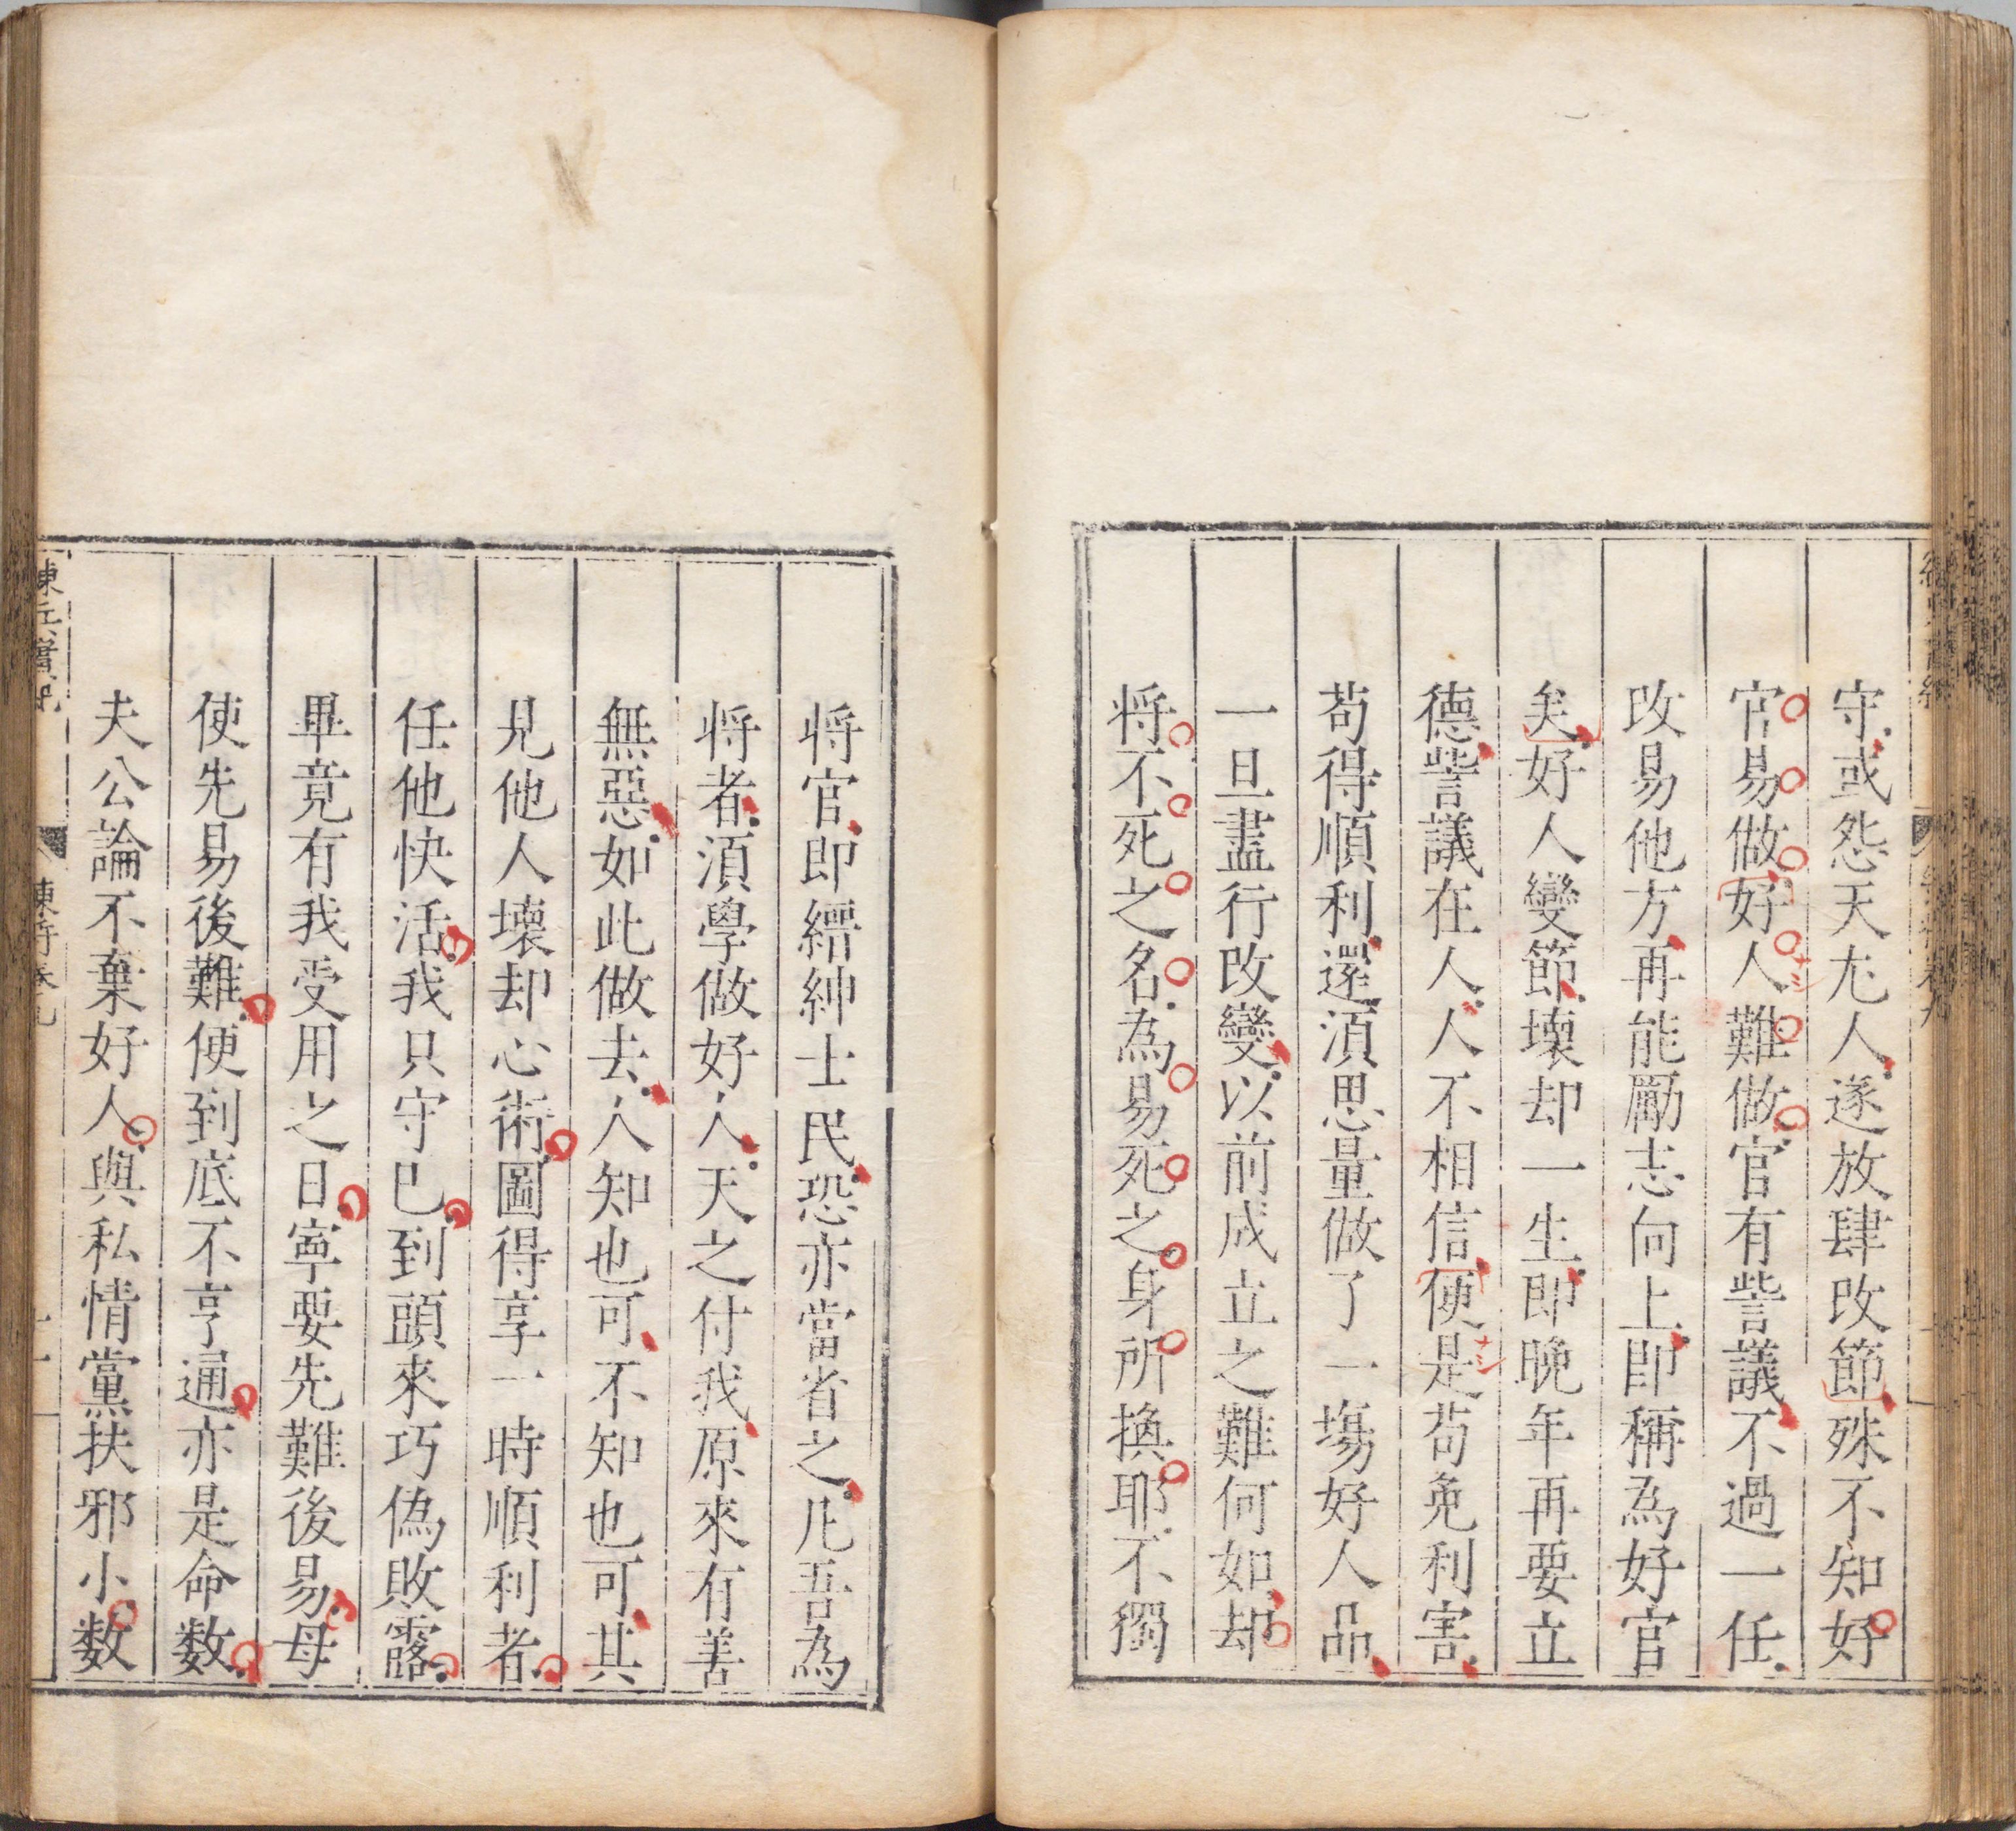 守或怨天尤人遂放肆改節殊不知好
官易做好人難做官有訾議不過一任
改易他方再能勵志向上即稱為好官
矣好人變節壞却一生即晚年再要立
德訾議在人人不相信便是苟免利害
苟得順利還須思量做了一塲好人品
一旦盡行改變以前成立之難何如却
将不死之名為易死之身所換耶不獨
将官即縉紳士民恐亦當省之凡吾為
将者須學做好人天之付我原來有善
無惡如此做去人知也可不知也可其
見他人壞却心術圖得享一時順利者
任他快活我只守巳到頭來巧偽敗露
畢竟有我受用之日寧要先難後易母
使先易後難便到底不亨通亦是命数
夫公論不棄好人與私情黨扶邪小数
練兵實紀
練将卷九